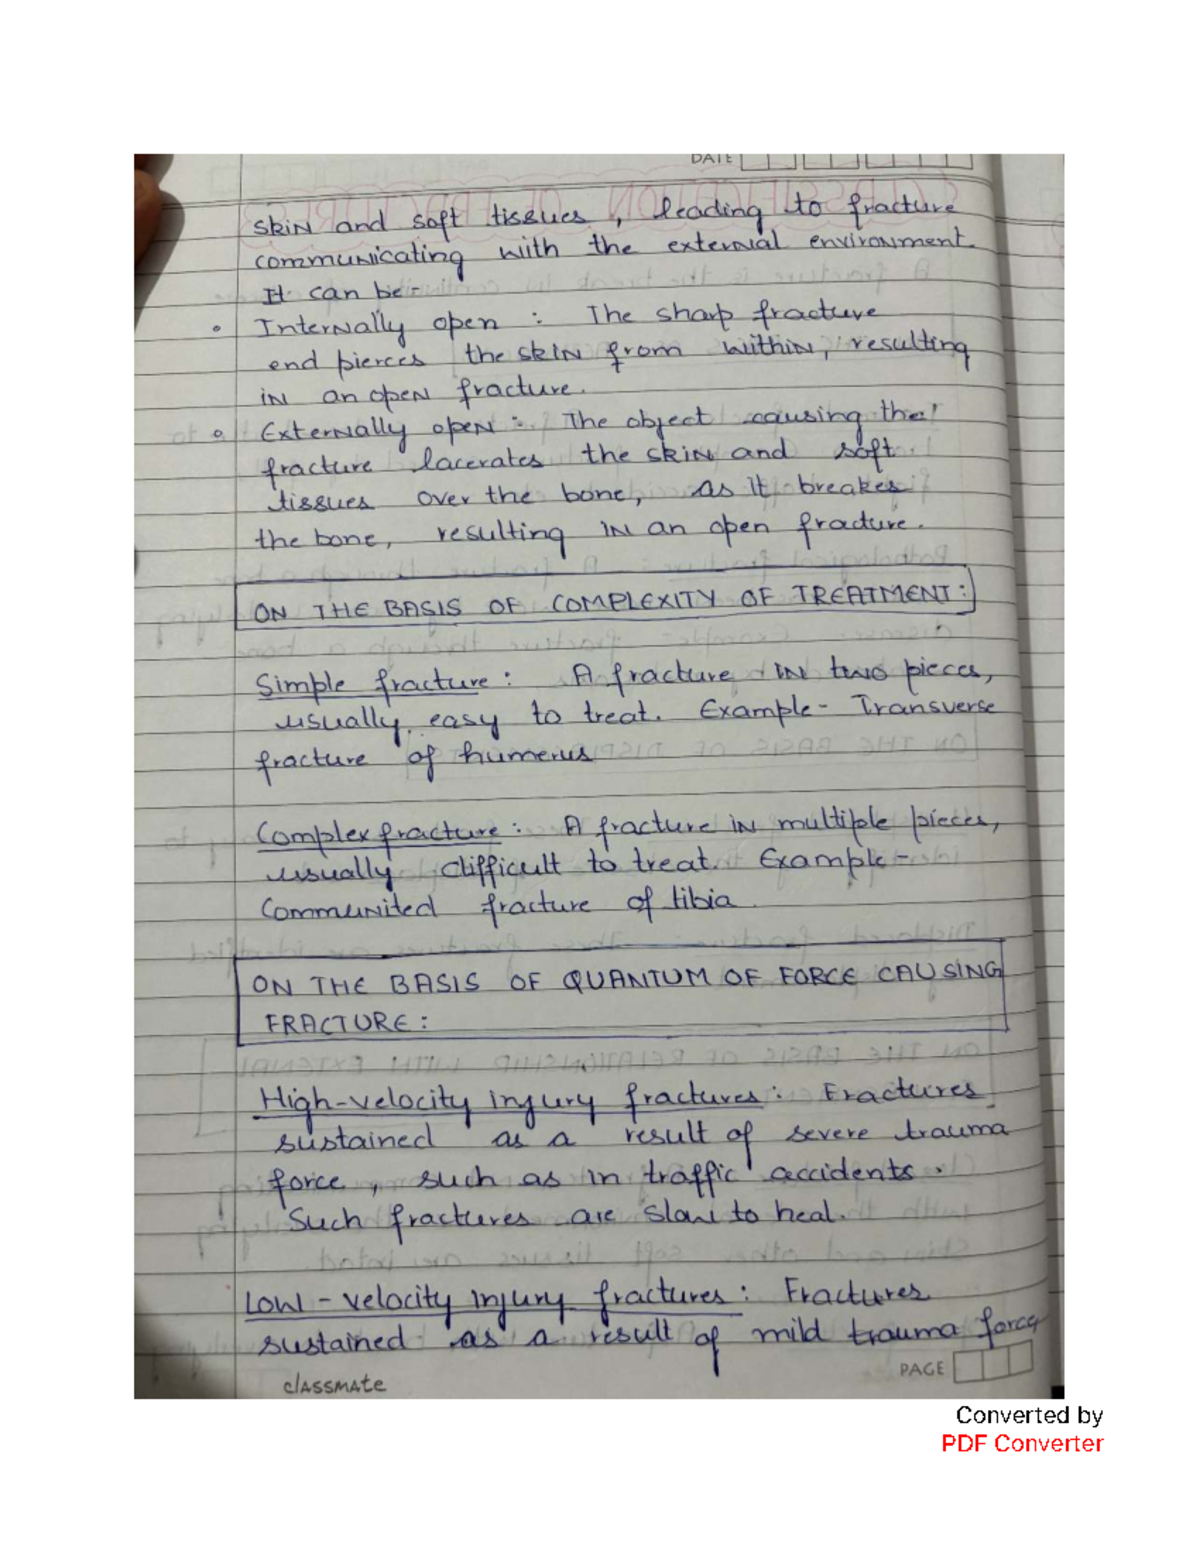 DATE
skin and soft tissues, leading to fracture
communicating with the external environment
It can be-
• Internally open : The sharp fracture
end pierces the skin from within, resulting
in an open fracture.
• Externally open : The object causing the
fracture lacerates the skin and soft
tissues over the bone, as it breakes
the bone, resulting in an open fracture.
ON THE BASIS OF COMPLEXITY OF TREATMENT:
Simple fracture: A fracture in two pieces,
usually easy to treat. Example- Transverse
fracture of humerus
Complex fracture: A fracture in multiple pieces,
usually difficult to treat. Example-
Communited fracture of tibia.
ON THE BASIS OF QUANTUM OF FORCE CAUSING
FRACTURE:
High-velocity injury fractures: Fractures
sustained as a result of severe trauma
force, such as in traffic accidents.
Such fractures are slow to heal.
Low-velocity injury fractures: Fractures
sustained as a result of mild trauma force,
classmate
PAGE
Converted by
PDF Converter